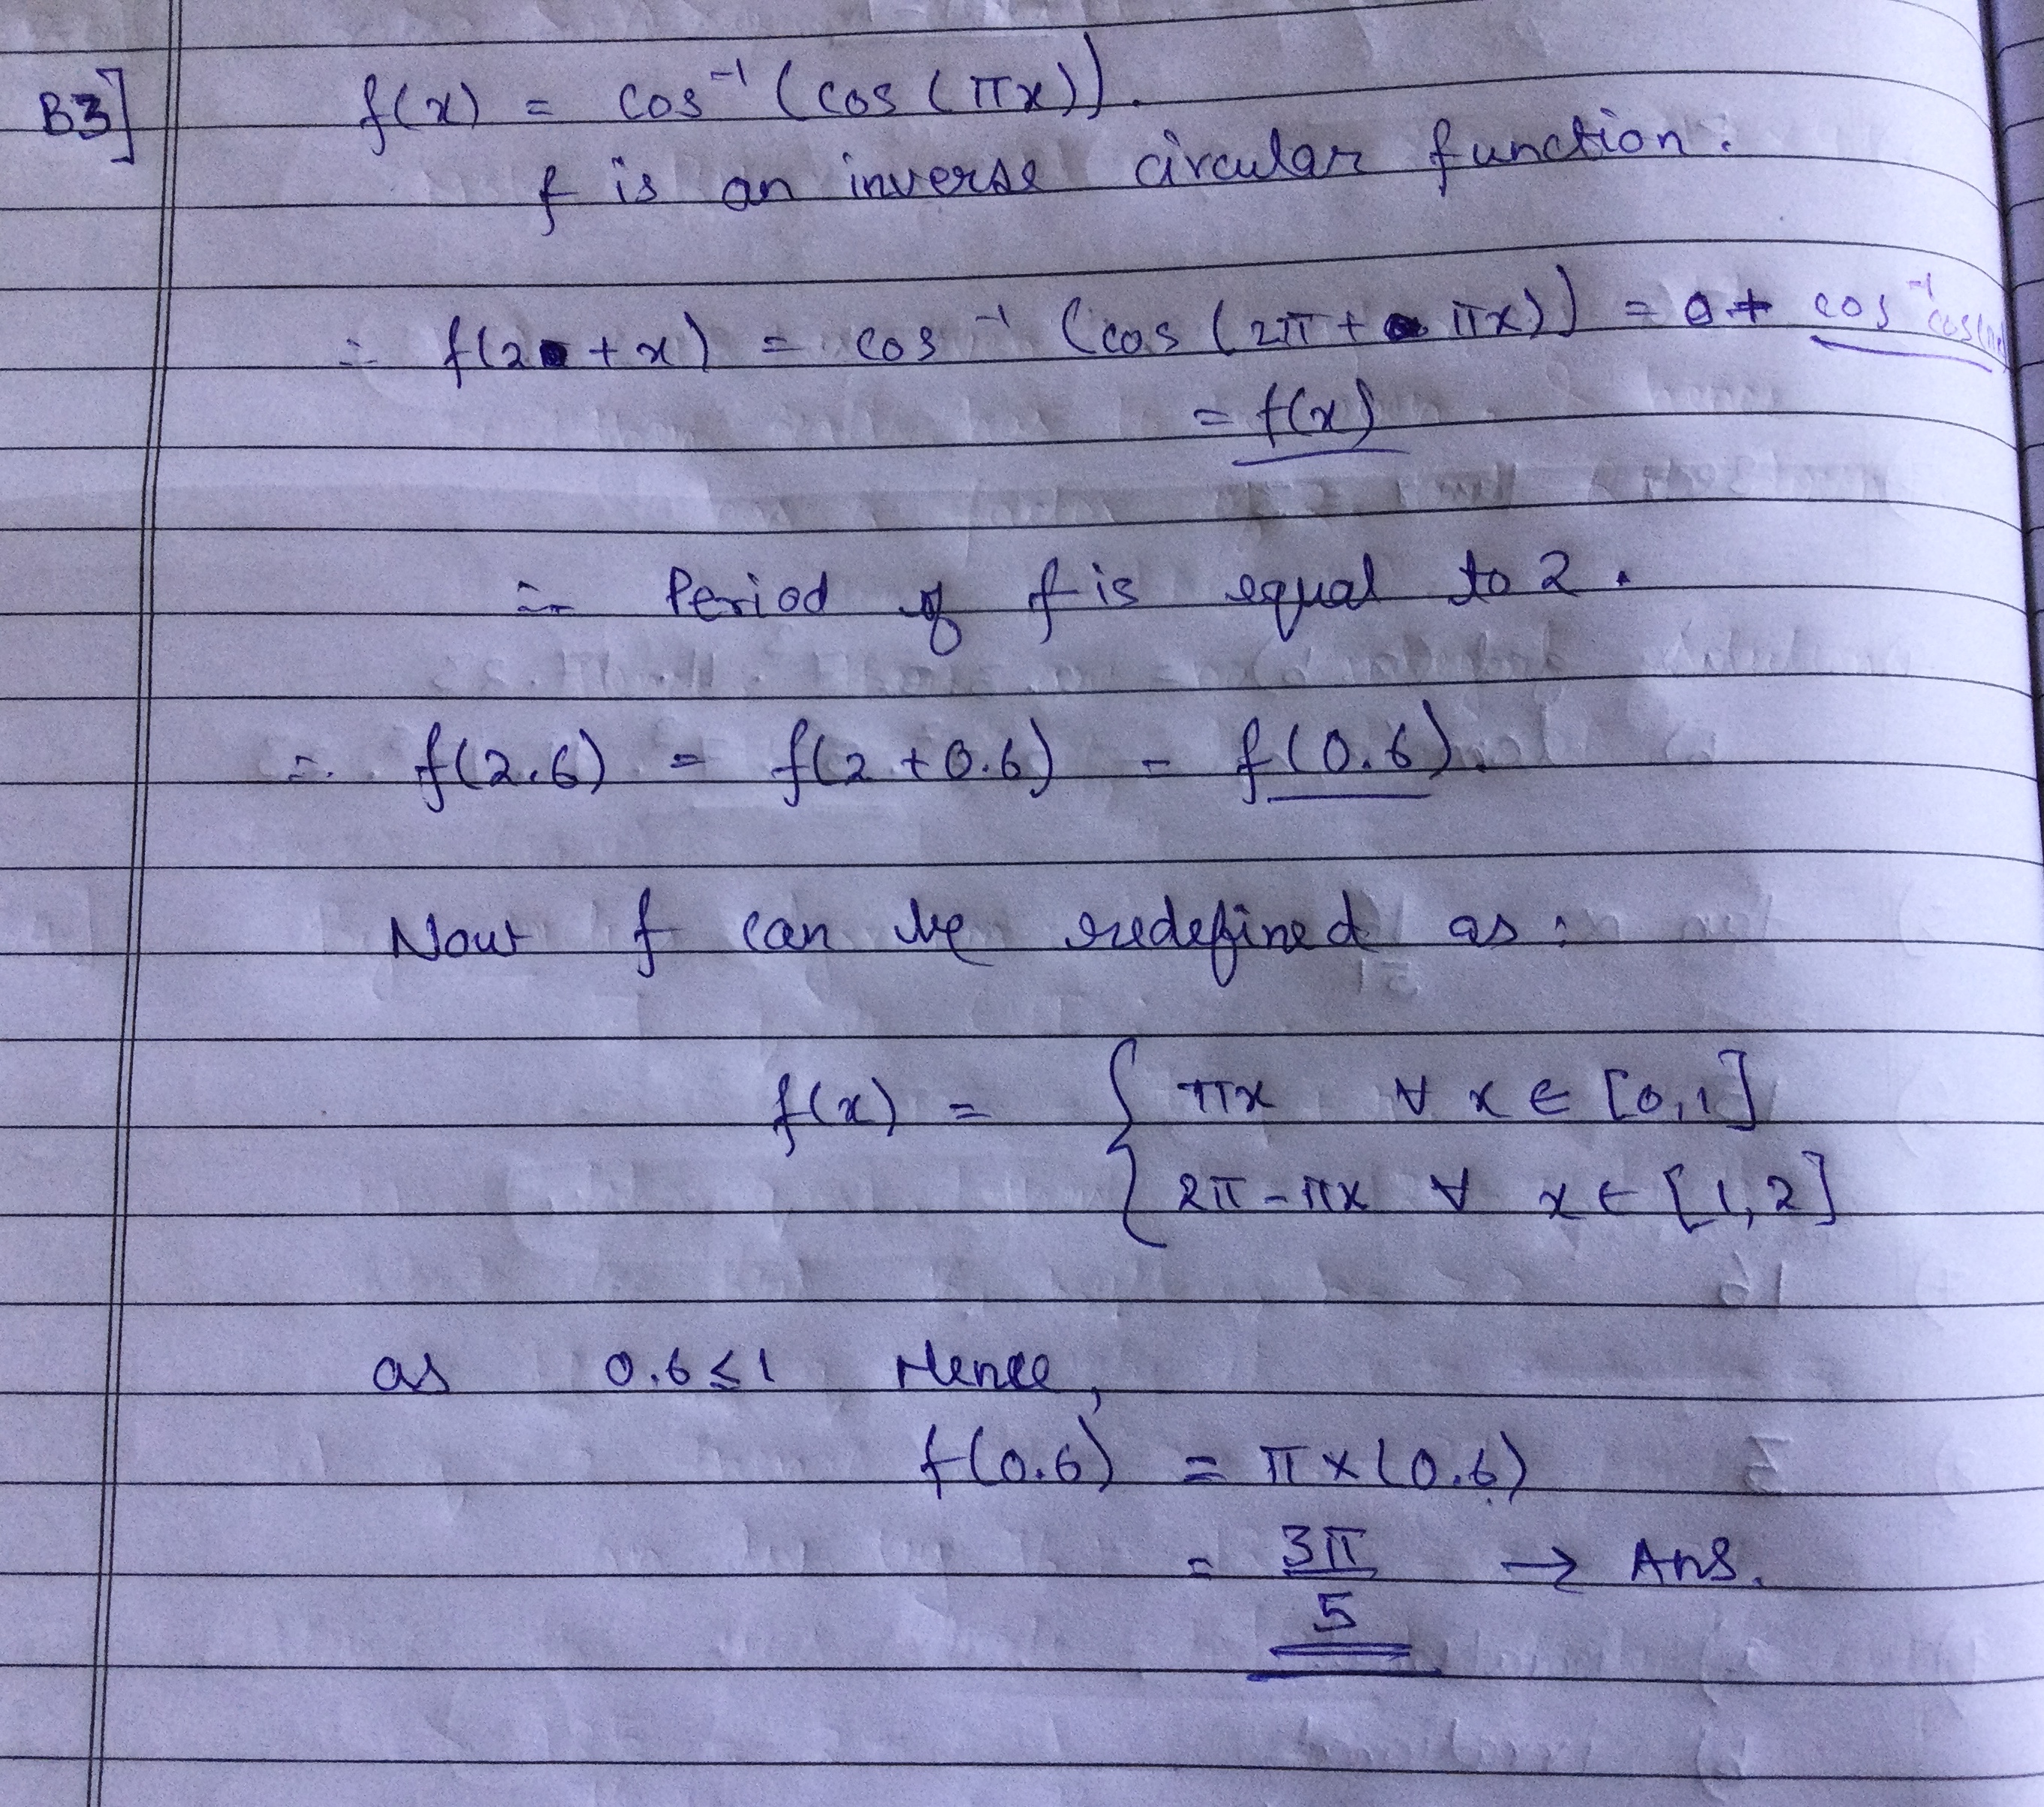 B3] f(x) = cos⁻¹ (cos (πx)).
f is an inverse circular function.
∴ f(2 + x) = cos⁻¹ (cos (2π + πx)) = 0 + cos⁻¹ cos(πx)
= f(x)
∴ Period of f is equal to 2.
∴ f(2.6) = f(2 + 0.6) = f(0.6).
Now f can be redefined as:
f(x) = { πx ∀ x ∈ [0,1]
2π - πx ∀ x ∈ [1,2]
as 0.6 ≤ 1 Hence,
f(0.6) = π × (0.6)
= 3π/5 → Ans.